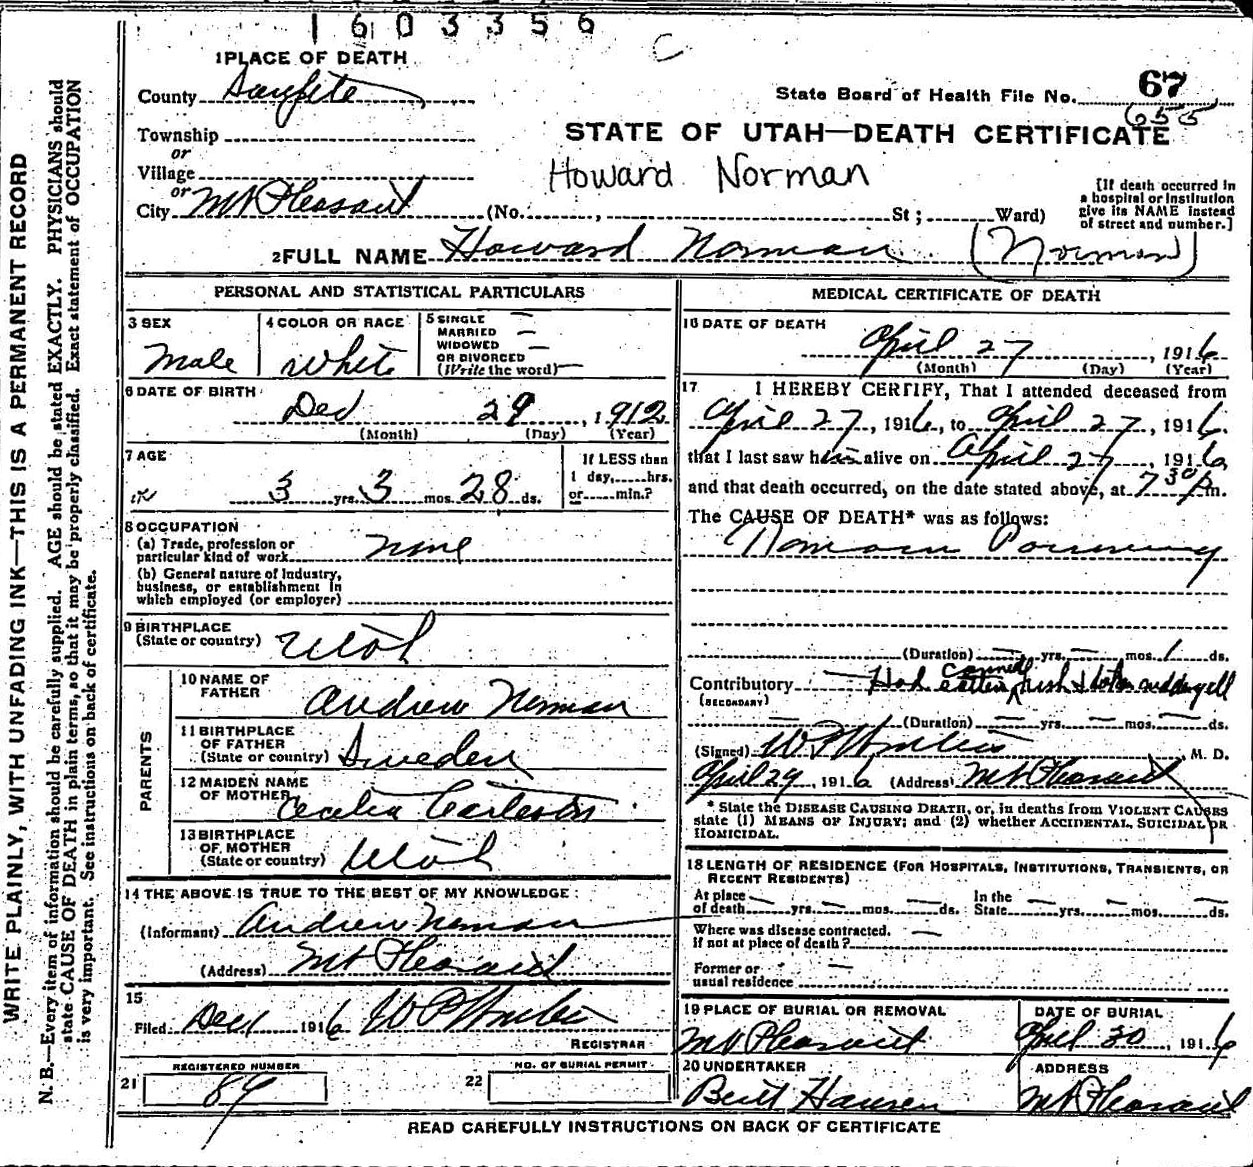 1603356
C
1 PLACE OF DEATH
County Sanpete
State Board of Health File No. 67
655
Township
or
Village
or
City Mt Pleasant (No. , St ; Ward)
STATE OF UTAH—DEATH CERTIFICATE
Howard Norman
[If death occurred in
a hospital or institution
give its NAME instead
of street and number.]
2 FULL NAME Howard Norman (Norman)
PERSONAL AND STATISTICAL PARTICULARS
3 SEX
Male
4 COLOR OR RACE
White
5 SINGLE —
MARRIED —
WIDOWED —
OR DIVORCED
(Write the word) —
6 DATE OF BIRTH
Dec 29, 1912
(Month) (Day) (Year)
7 AGE
3 yrs. 3 mos. 28 ds.
If LESS than
1 day, hrs.
or min.?
8 OCCUPATION
(a) Trade, profession or
particular kind of work none
(b) General nature of Industry,
business, or establishment in
which employed (or employer)
9 BIRTHPLACE
(State or country) Utah
PARENTS
10 NAME OF
FATHER Andrew Norman
11 BIRTHPLACE
OF FATHER
(State or country) Sweden
12 MAIDEN NAME
OF MOTHER Cecelia Carlson
13 BIRTHPLACE
OF MOTHER
(State or country) Utah
14 THE ABOVE IS TRUE TO THE BEST OF MY KNOWLEDGE :
(Informant) Andrew Norman
(Address) Mt Pleasant
15
Filed Dec 1 1916
REGISTRAR
REGISTERED NUMBER
21 89
NO. OF BURIAL PERMIT
22
MEDICAL CERTIFICATE OF DEATH
16 DATE OF DEATH
April 27, 1916
(Month) (Day) (Year)
17 I HEREBY CERTIFY, That I attended deceased from
April 27, 1916, to April 27, 1916.
that I last saw him alive on April 27, 1916,
and that death occurred, on the date stated above, at 7 30 p m.
The CAUSE OF DEATH* was as follows:
(Duration) — yrs. — mos. 1 ds.
Contributory Had eaten canned fish
(SECONDARY)
(Duration) — yrs. — mos. — ds.
(Signed) M. D.
April 29, 1916 (Address) Mt Pleasant
* State the DISEASE CAUSING DEATH, or, in deaths from VIOLENT CAUSES
state (1) MEANS OF INJURY; and (2) whether ACCIDENTAL, SUICIDAL OR
HOMICIDAL.
18 LENGTH OF RESIDENCE (FOR HOSPITALS, INSTITUTIONS, TRANSIENTS, OR
RECENT RESIDENTS)
At place
of death — yrs. — mos. — ds.
In the
State — yrs. — mos. — ds.
Where was disease contracted. —
if not at place of death?
Former or —
usual residence
19 PLACE OF BURIAL OR REMOVAL
Mt Pleasant
DATE OF BURIAL
April 30, 1916
20 UNDERTAKER
Bent Hansen
ADDRESS
Mt Pleasant
READ CAREFULLY INSTRUCTIONS ON BACK OF CERTIFICATE
WRITE PLAINLY, WITH UNFADING INK—THIS IS A PERMANENT RECORD
N. B.—Every item of information should be carefully supplied. AGE should be stated EXACTLY. PHYSICIANS should
state CAUSE OF DEATH in plain terms, so that it may be properly classified. Exact statement of OCCUPATION
is very important. See instructions on back of certificate.